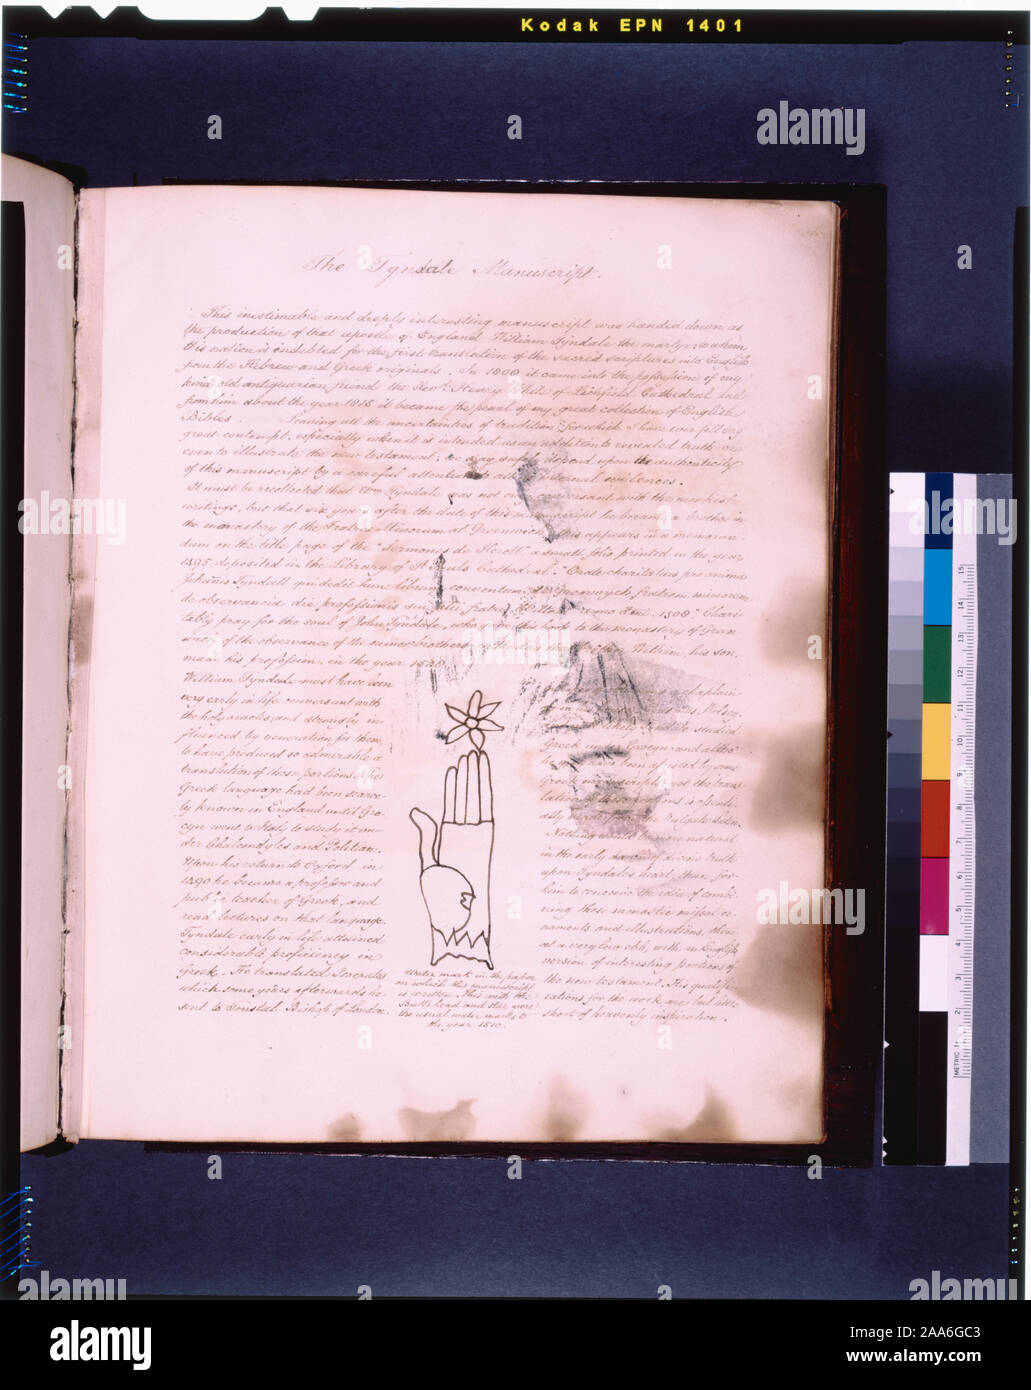 Kodak EPN 1401
The Tyndale Manuscript.
This inestimable and deeply interesting manuscript was handed down as
the production of that apostle of England William Tyndale the martyr, to whom
this nation is indebted for the first translation of the sacred scriptures into English
from the Hebrew and Greek originals. In 1808 it came into the possession of my
kind old antiquarian friend the Revd. Henry White of Lichfield Cathedral and
from him about the year 1815 it became the pearl of my great collection of English
Bibles. Leaving all the uncertainties of tradition for which I have ever felt very
great contempt, especially when it is intended as an addition to revealed truth or
even to illustrate the new testament; we may safely depend upon the authenticity
of this manuscript by a careful attention to all internal evidences.
It must be recollected that Wm Tyndale was not only conversant with the monkish
writings, but that six years after the date of this manuscript he became a brother in
the monastery of the Fratres Minorum at Greenwich. This appears in a memoran-
dum on the title page of the "Sermones de Herolt" a small folio printed in the year
1495 deposited in the Library of St Pauls Cathedral. "Orate charitatius pro anima
Johanis Tyndall qui dedit hunc librum conventui de Greenwych fratrum minorum
de observancia die professionis sue filii fratris Anno dmi 1508" Chari-
tably pray for the soul of John Tyndale, who gave this book to the monastery of Green-
wich of the observance of the minor brothers, on the day that brother William, his son,
made his profession, in the year 1508
William Tyndale must have been
very early in life conversant with
the holy oracles, and strongly in-
fluenced by veneration for them,
to have produced so admirable a
translation of these portions. The
Greek language had been scarce-
ly known in England until Gro-
cyn went to Italy to study it un-
der Chalcondyles and Politian.
Upon his return to Oxford in
1490 he became a professor and
public teacher of Greek, and
read lectures on that language.
Tyndale early in life attained
considerable proficiency in
Greek. He translated Isocrates
which some years afterwards he
sent to Tonstal Bishop of London.
Water mark in the paper
on which this manuscript
is written. This with the
Bulls head and star were
the usual water marks to
the year 1510.
chaplain
Tyndale studied
Greek under Grocyn and altho'
he may have been assisted by some
Greek manuscript, yet the trans-
lation
Nothing would be more natural
in the early dawn of divine truth
upon Tyndale's heart, than for
him to conceive the idea of combi-
ning these monastic missal or-
naments and illustrations, then
at a very low ebb, with an English
version of interesting portions of
the new testament. His qualifi-
cations for the work are but little
short of heavenly inspiration.
METRIC 1
2
3
4
5
6
7
8
9
10
11
12
13
14
15
alamy
Image ID: 2AA6GC3
www.alamy.com